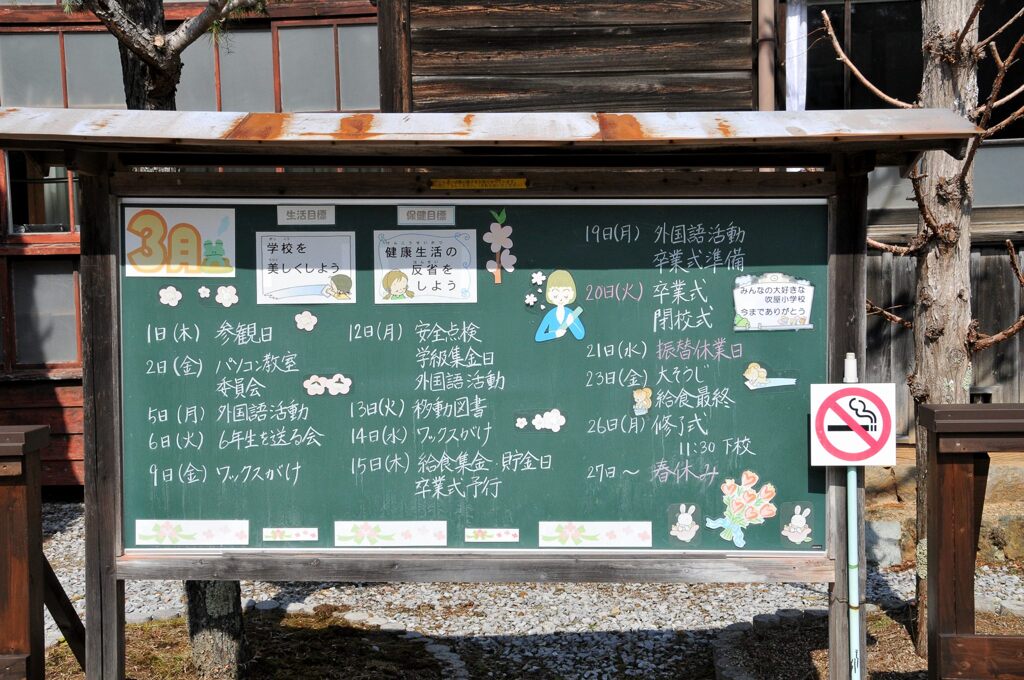 3月
生活目標
学校を
美しくしよう
がっこう
うつく
保健目標
けんこうせいかつ
健康生活の
はんせい
反省を
しよう
1日(木) 参観日
2日(金) パソコン教室
委員会
5日(月) 外国語活動
6日(火) 6年生を送る会
9日(金) ワックスがけ
12日(月) 安全点検
学級集金日
外国語活動
13日(火) 移動図書
14日(水) ワックスがけ
15日(木) 給食集金・貯金日
卒業式予行
19日(月) 外国語活動
卒業式準備
20日(火) 卒業式
閉校式
みんなの大好きな
吹屋小学校
今までありがとう
21日(水) 振替休業日
23日(金) 大そうじ
給食最終
26日(月) 修了式
11:30 下校
27日〜 春休み